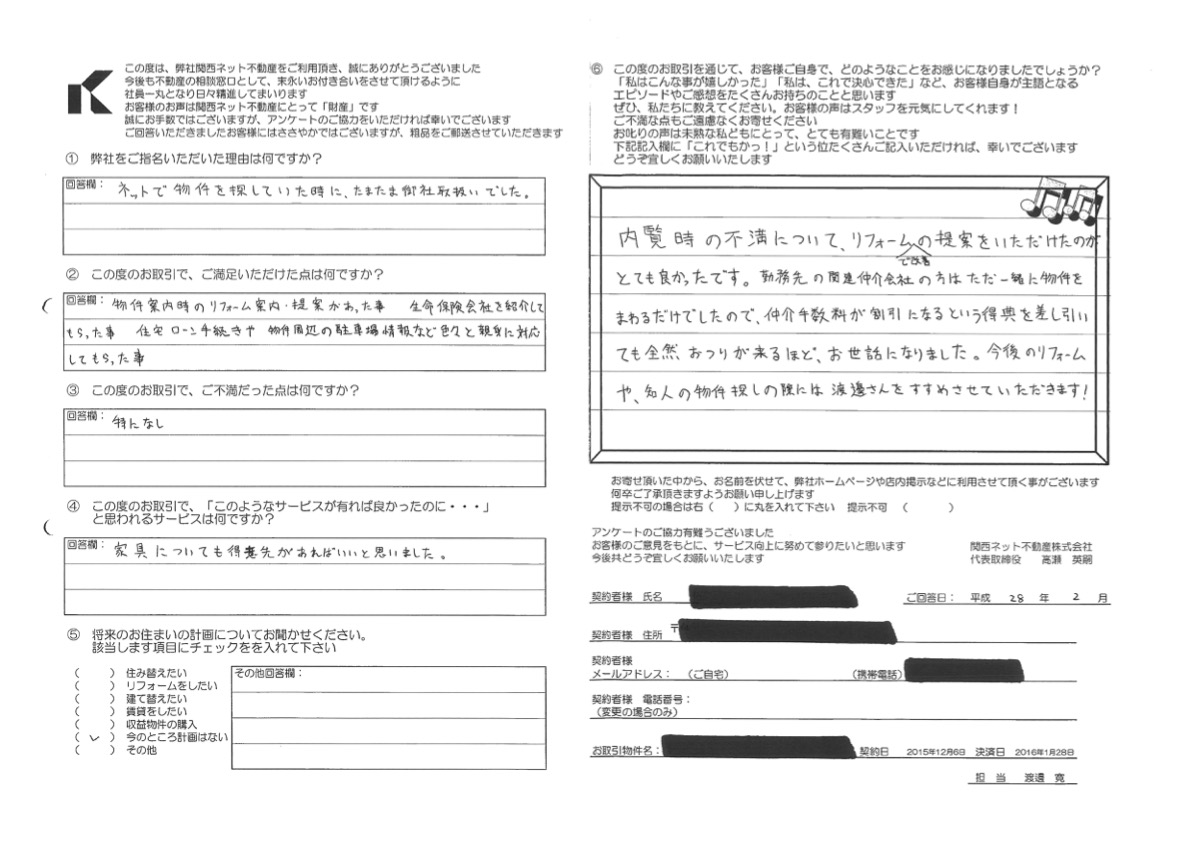 この度は、弊社関西ネット不動産をご利用頂き、誠にありがとうございました
今後も不動産の相談窓口として、末永いお付き合いをさせて頂けるように
社員一丸となり日々精進してまいります
お客様のお声は関西ネット不動産にとって「財産」です
誠にお手数ではございますが、アンケートのご協力をいただければ幸いでございます
ご回答いただきましたお客様にはささやかではございますが、粗品をご郵送させていただきます
① 弊社をご指名いただいた理由は何ですか？
回答欄： ネットで物件を探していた時に、たまたま御社取扱いでした。
② この度のお取引で、ご満足いただけた点は何ですか？
回答欄： 物件案内時のリフォーム案内・提案があった事 生命保険会社を紹介して
もらった事 住宅ローン手続きや 物件周辺の駐車場情報など色々と親身に対応
してもらった事
③ この度のお取引で、ご不満だった点は何ですか？
回答欄： 特になし
④ この度のお取引で、「このようなサービスが有れば良かったのに・・・」
と思われるサービスは何ですか？
回答欄： 家具についても得意先があればいいと思いました。
⑤ 将来のお住まいの計画についてお聞かせください。
該当します項目にチェックをを入れて下さい
（ ） 住み替えたい
（ ） リフォームをしたい
（ ） 建て替えたい
（ ） 賃貸をしたい
（ ） 収益物件の購入
（ ✓ ） 今のところ計画はない
（ ） その他
その他回答欄：
⑥ この度のお取引を通じて、お客様ご自身で、どのようなことをお感じになりましたでしょうか？
「私はこんな事が嬉しかった」「私は、これで決心できた」など、お客様自身が主語となる
エピソードやご感想をたくさんお持ちのことと思います
ぜひ、私たちに教えてください。お客様の声はスタッフを元気にしてくれます！
ご不満な点もご遠慮なくお寄せください
お叱りの声は未熟な私どもにとって、とても有難いことです
下記記入欄に「これでもかっ！」という位たくさんご記入いただければ、幸いでございます
どうぞ宜しくお願いいたします
内覧時の不満について、リフォームの提案をいただけたのが
で改善
とても良かったです。勤務先の関連仲介会社の方はただ一緒に物件を
まわるだけでしたので、仲介手数料が割引になるという得典を差し引い
ても全然、おつりが来るほど、お世話になりました。今後のリフォーム
や、知人の物件探しの際には渡邊さんをすすめさせていただきます！
お寄せ頂いた中から、お名前を伏せて、弊社ホームページや店内掲示などに利用させて頂く事がございます
何卒ご了承頂きますようお願い申し上げます
提示不可の場合は右（ ）に丸を入れて下さい 提示不可 （ ）
アンケートのご協力有難うございました
お客様のご意見をもとに、サービス向上に努めて参りたいと思います
今後共どうぞ宜しくお願いいたします
関西ネット不動産株式会社
代表取締役 高瀬 英嗣
契約者様 氏名
ご回答日： 平成 28 年 2 月
契約者様 住所 〒
契約者様
メールアドレス： （ご自宅） （携帯電話）
契約者様 電話番号：
（変更の場合のみ）
お取引物件名： 契約日 2015年12月6日 決済日 2016年1月28日
担 当 渡邉 寛